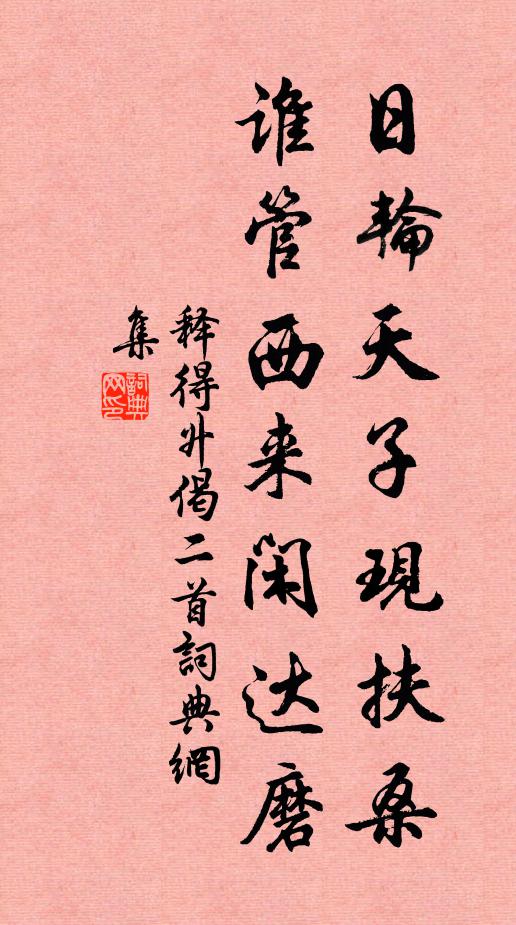 日輪天子現扶桑
谁管西来闲达磨
释得升偈二首詞典網
集
詞典網印